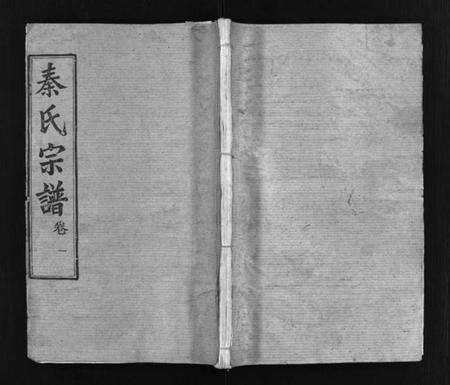 秦氏宗譜卷一